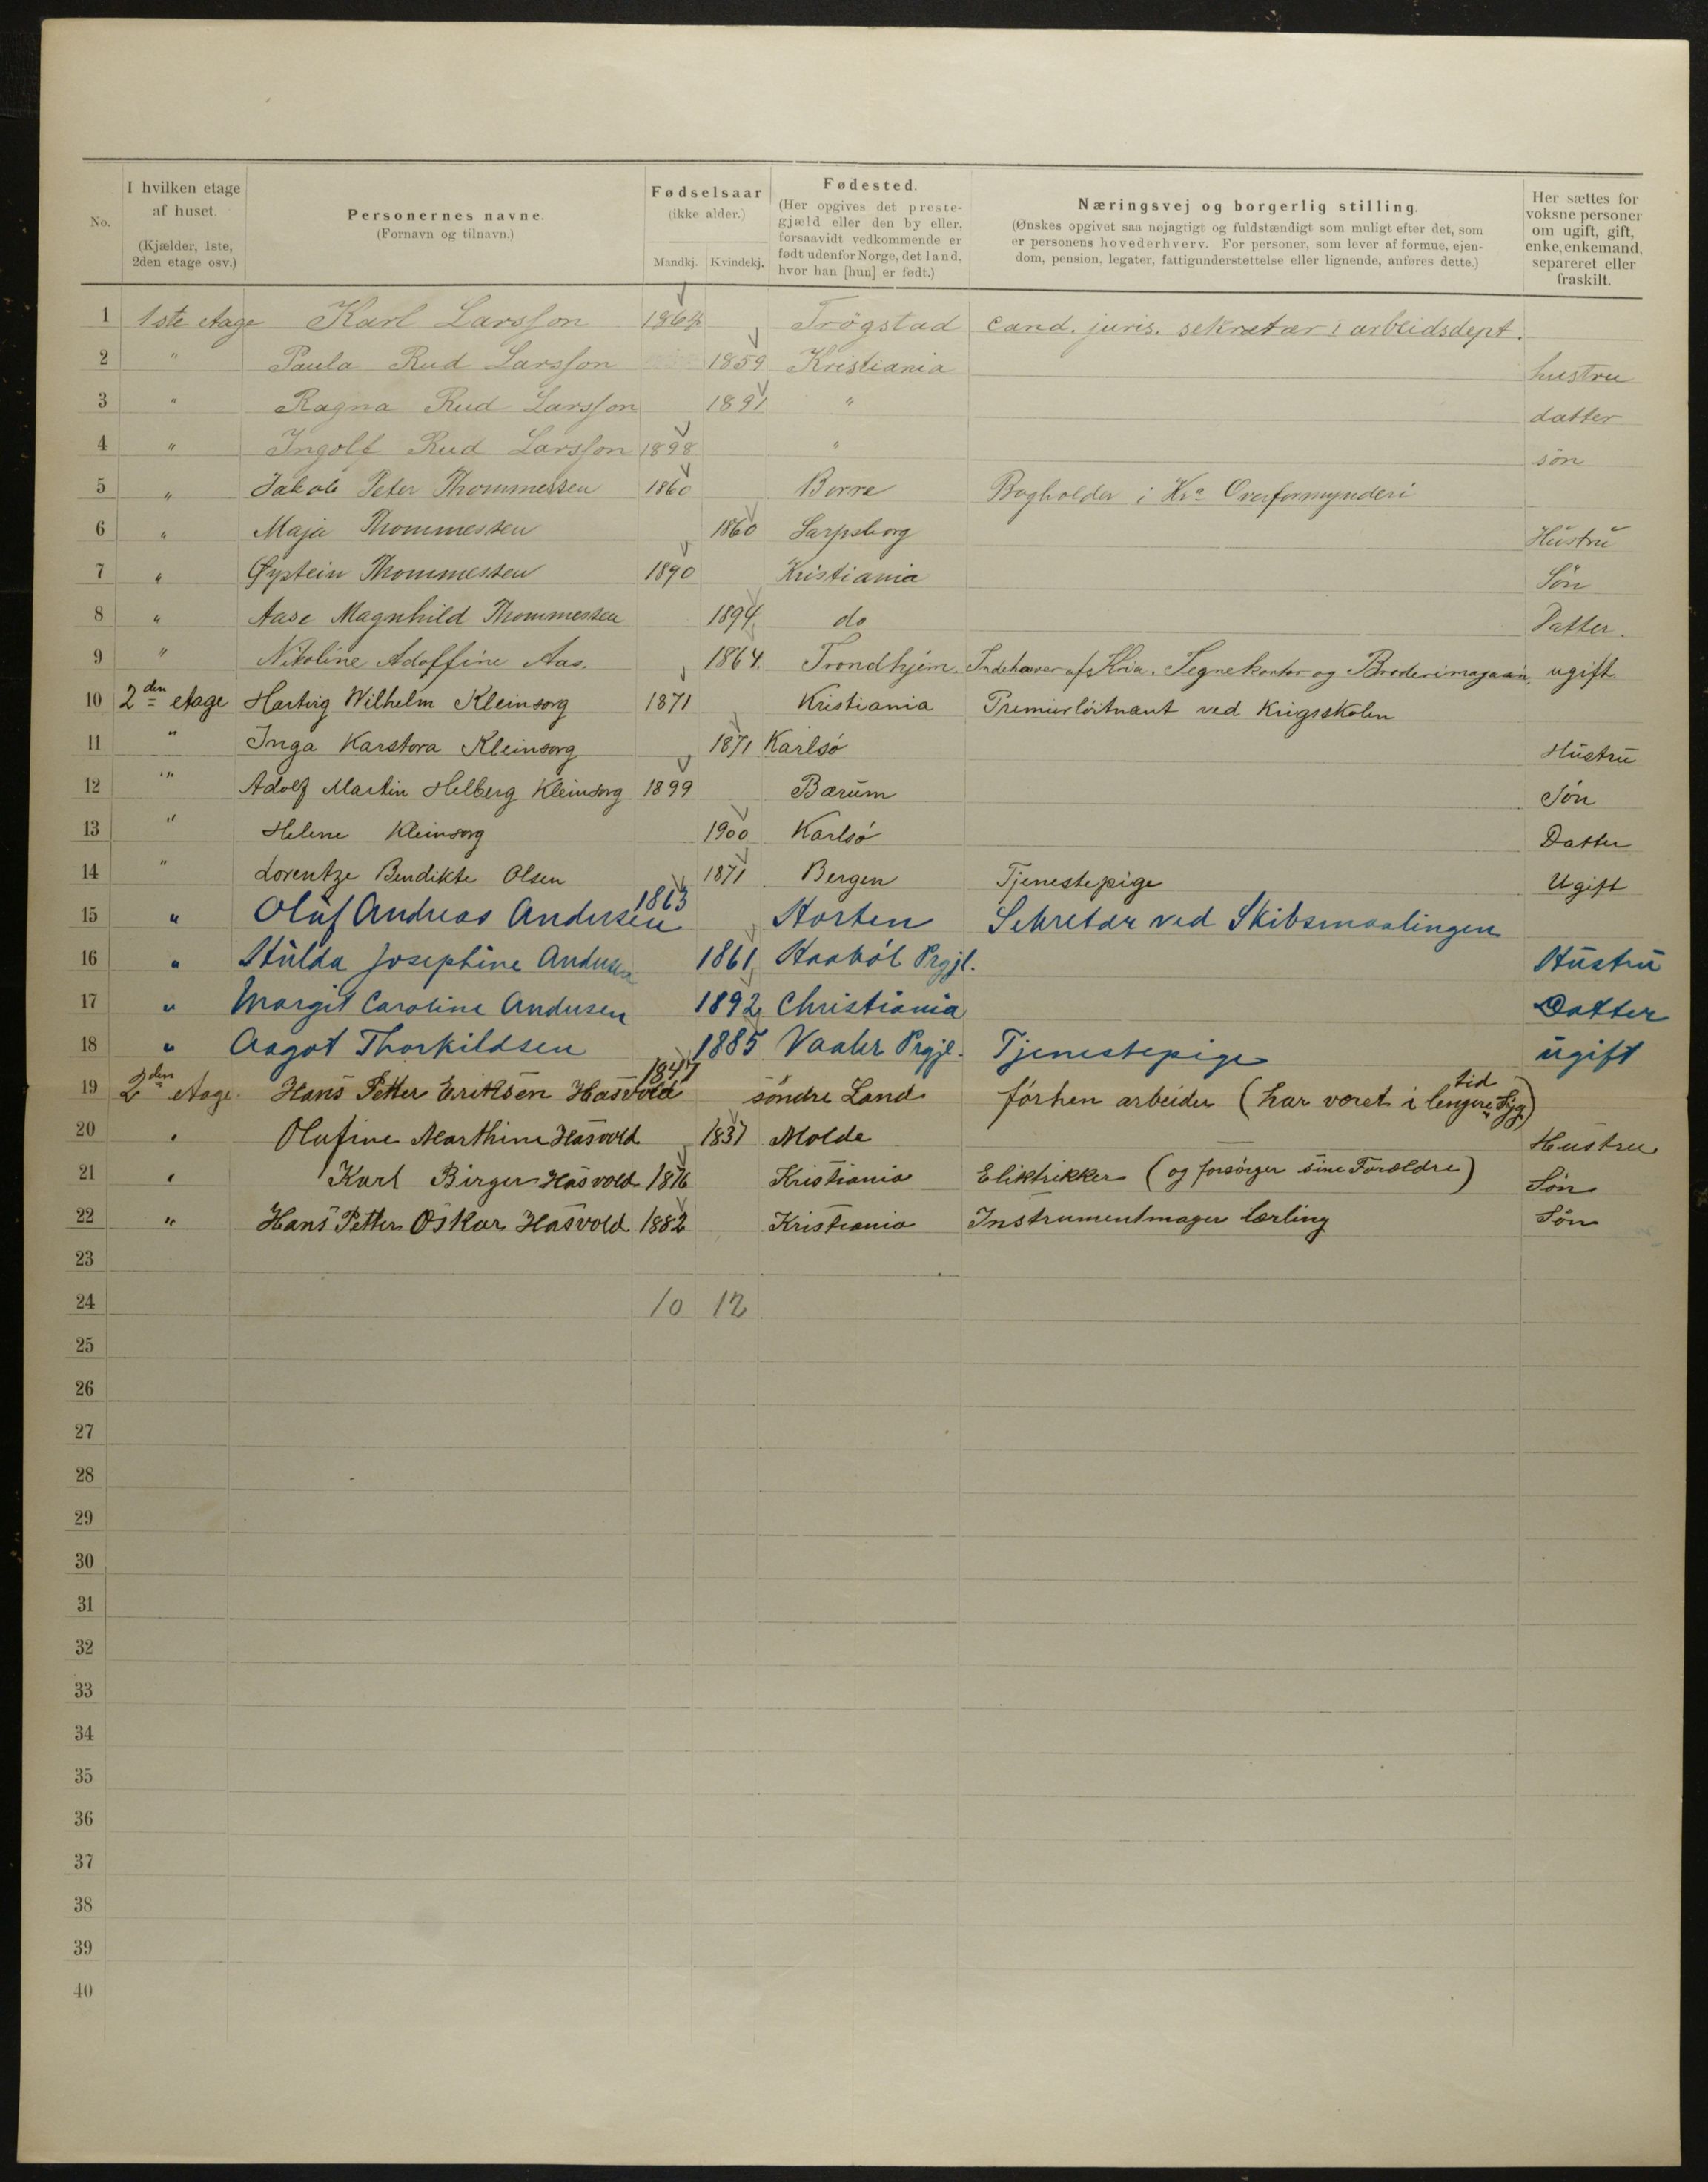 No.
I hvilken etage af huset. (Kjælder, 1ste, 2den etage osv.)
Personernes navne. (Fornavn og tilnavn.)
Fødselsaar (ikke alder.) Mandkj. Kvindekj.
Fødested. (Her opgives det prestegjæld eller den by eller, forsaavidt vedkommende er født udenfor Norge, det land, hvor han [hun] er født.)
Næringsvej og borgerlig stilling. (Ønskes opgivet saa nøjagtigt og fuldstændigt som muligt efter det, som er personens hovederhverv. For personer, som lever af formue, ejendom, pension, legater, fattigunderstøttelse eller lignende, anføres dette.)
Her sættes for voksne personer om ugift, gift, enke, enkemand, separeret eller fraskilt.
1 1ste etage Karl Larsson 1864 Trøgstad cand. juris. sekretær i arbeidsdept.
2 " Paula Rud Larsson 1859 Kristiania hustru
3 " Ragna Rud Larsson 1891 " datter
4 " Ingolf Rud Larsson 1898 " søn
5 " Jakob Peter Thommessen 1860 Borre Bogholder i Kra Overformynderi
6 " Maja Thommessen 1860 Sarpsborg Hustru
7 " Øystein Thommessen 1890 Kristiania Søn
8 " Aase Magnhild Thommessen 1894 do Datter.
9 " Nikoline Adoffine Aas. 1864. Trondhjem. Indehaver af Kria. Tegnekontor og Broderimagasin. ugift
10 2den etage Hartvig Wilhelm Kleinsorg 1871 Kristiania Premierløitnant ved Krigsskolen
11 " Inga Karstora Kleinsorg 1871 Karlsö Hustru
12 " Adolf Martin Helberg Kleinsorg 1899 Bærum Søn
13 " Helene Kleinsorg 1900 Karlsö Datter
14 " Lorentze Bendikte Olsen 1871 Bergen Tjenestepige Ugift
15 " Oluf Andreas Andersen 1863 Horten Sekretær ved Skibsmaalingen
16 " Hulda Josephine Andersen 1861 Haaböl Prgjl. Hustru
17 " Margit Caroline Andersen 1892 Christiania Datter
18 " Aagot Thorkildsen 1885 Vaaler Prgjl. Tjenestepige ugift
19 2den etage. Hans Petter Eriksen Hasvold 1847 söndre Land förhen arbeider (har været i lengere tid syg)
20 " Olufine Marthine Hasvold 1837 Molde — Hustru
21 " Karl Birger Hasvold 1876 Kristiania Eliktrikker (og forsörger sine Forældre) Søn
22 " Hans Petter Oskar Hasvold 1882 Kristiania Instrumentmager lærling Søn
23
24 10 12
25
26
27
28
29
30
31
32
33
34
35
36
37
38
39
40